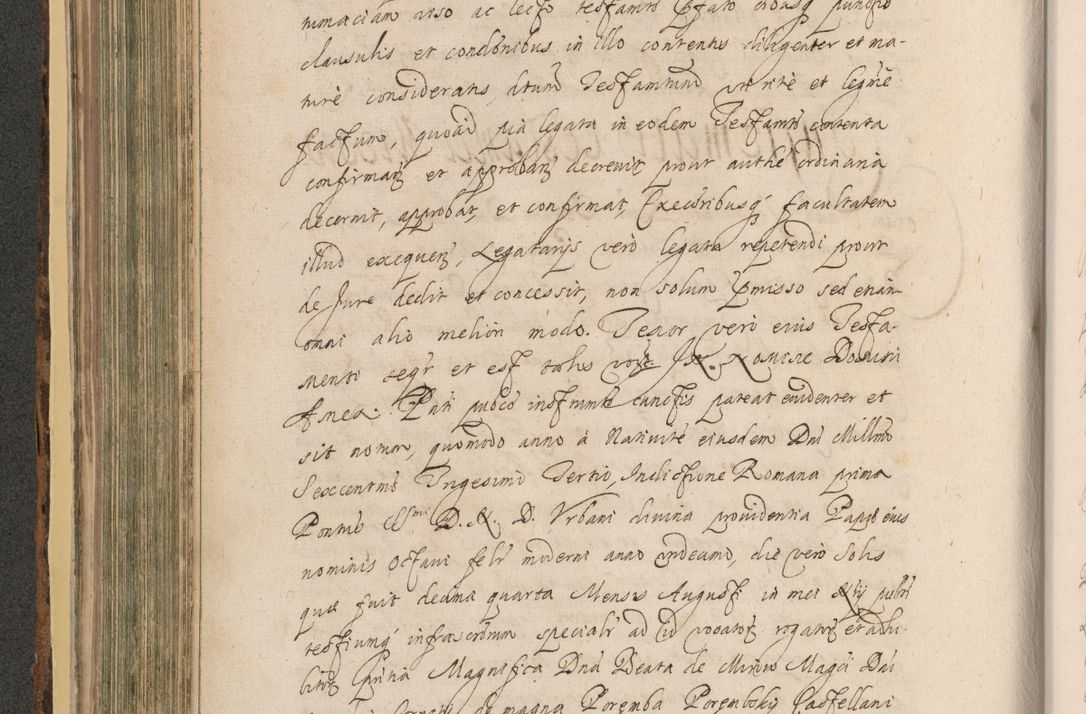 tumaciam viso ac lecto testamto pfato eiusq punctis
clausulis et condonibus in illo contentis diligenter et ma-
turè consideratis, dtum Testamtum uti ritè et legmè
factum, quoad pia legata in eodem Testamto contenta
confirmanz et approbanz decrevit prout authe ordinaria
decernit, approbat, et confirmat, Execoribusq facultatem
illud exequenz, Legatarijs verò legata repetendi prout
de Jure dedit et concessit, non solum pmisso sed etiam
omni alio meliori modo. Tenor verò eius Testa-
menti segr et est talis In Nomine Domini
Amen. Pnti puco instrumto cunctis pateat evidenter et
sit notum, quomodo anno à Nativite eiusdem Dni Millmo
Sexcentmo Trigesimo Tertio, Indictione Romana prima
Pontus SSmi D. N. D. Urbani divina providentia Papae eius
nominis Octavi felr moderni anno undecimo, die verò Solis
quae fuit decima quarta Mensis Augusti in mei Nrij publci
testiumq infrascrorum specialr ad id vocatorz rogatorz et adhi-
bitorz pntia Magnifica Dna Beata de Mirow Magci Dni
de magna Poremba Porembsky Castellani